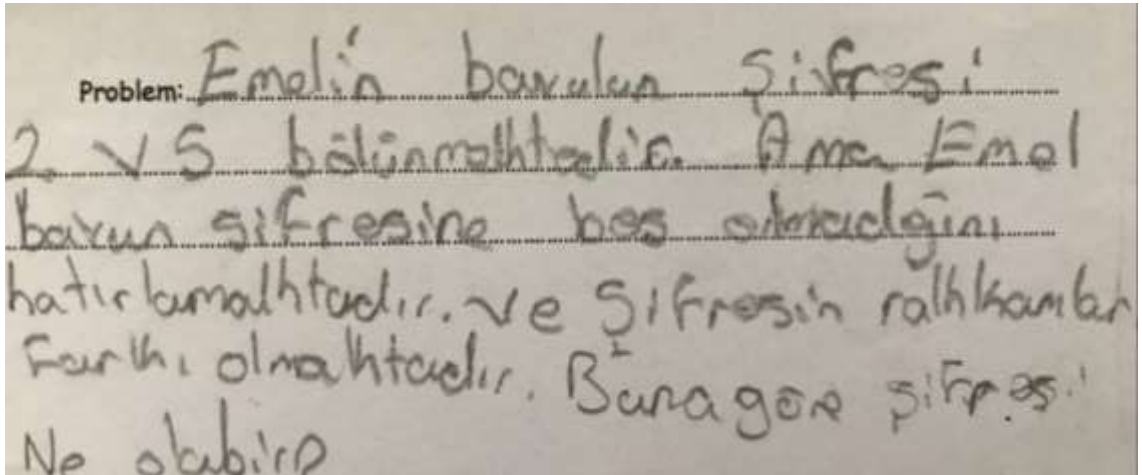 Problem: Emelin bavulun şifresi
2 V 5 bölünmahtadır. Ama Emel
bavun şifresine beş olmadğını
hatırlamahtadır. ve Şifresin rahkamlar
Farkı olmahtadır. Buna göre şifresi
Ne olabir?